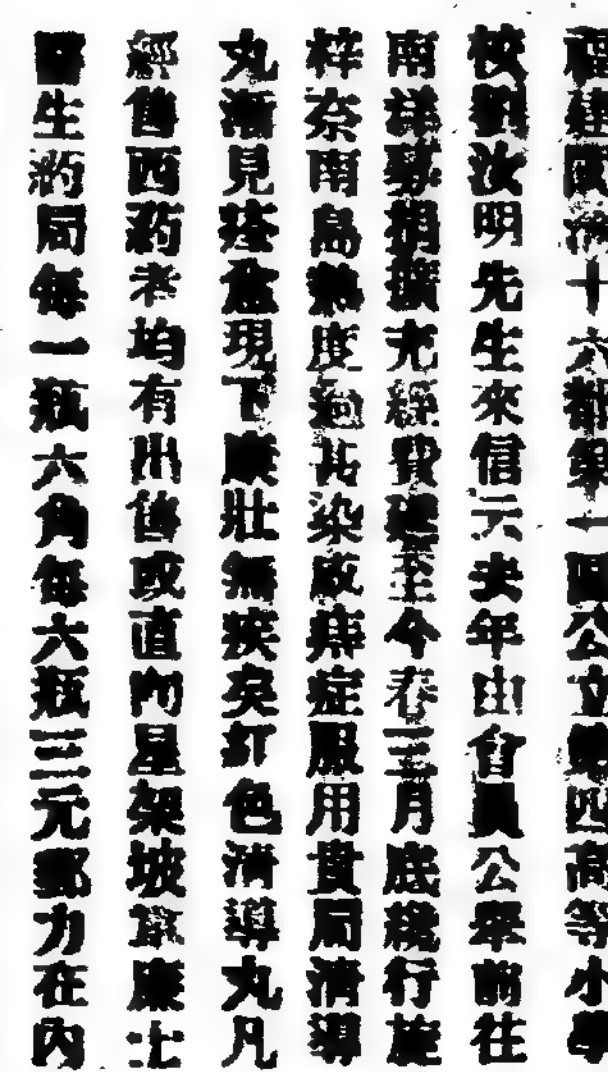 福建閩清十六都第一區公立第四高等小學
校劉汝明先生來信云去年由會員公舉前往
南洋募捐擴充經費延至今春三月底纔行旋
梓奈南島熱度過甚染成痔症服用貴局清導
丸漸見痊愈現下康壯無疾矣紅色清導丸凡
經售西药者均有出售或直向星架坡韋廉士
醫生药局每一瓶六角每六瓶三元郵力在內